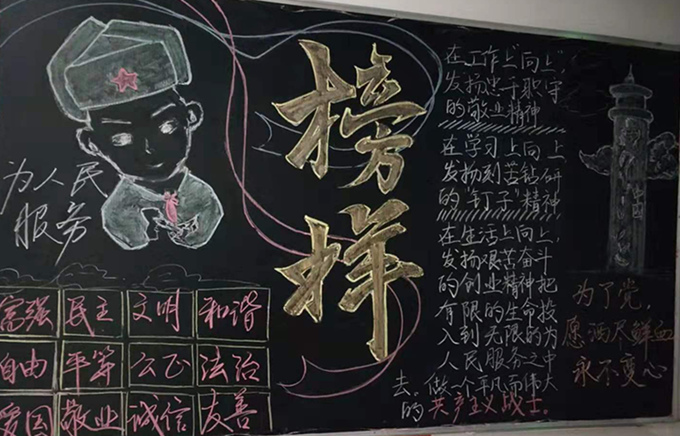 为人民
服务
富强 民主 文明 和谐
自由 平等 公正 法治
爱国 敬业 诚信 友善
榜样
在工作上"向上",
发扬忠于职守
的敬业精神
在学习上向上
发扬刻苦钻研
的"钉子"精神
在生活上向上,
发扬艰苦奋斗
的创业精神把
有限的生命投
入到无限的为
人民服务之中
去。做一个平凡而伟大
的共产主义战士。
为了党,
愿洒尽鲜血
永不变心